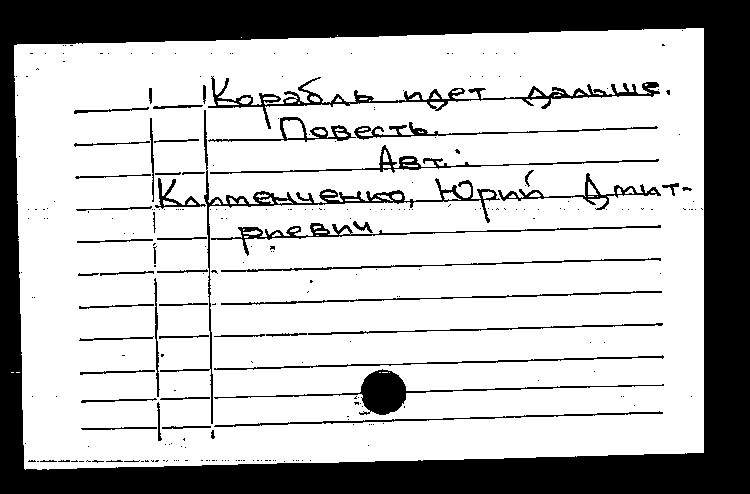 Корабль идет дальше.
Повесть.
Авт.:
Клименченко, Юрий Дмит-
риевич.